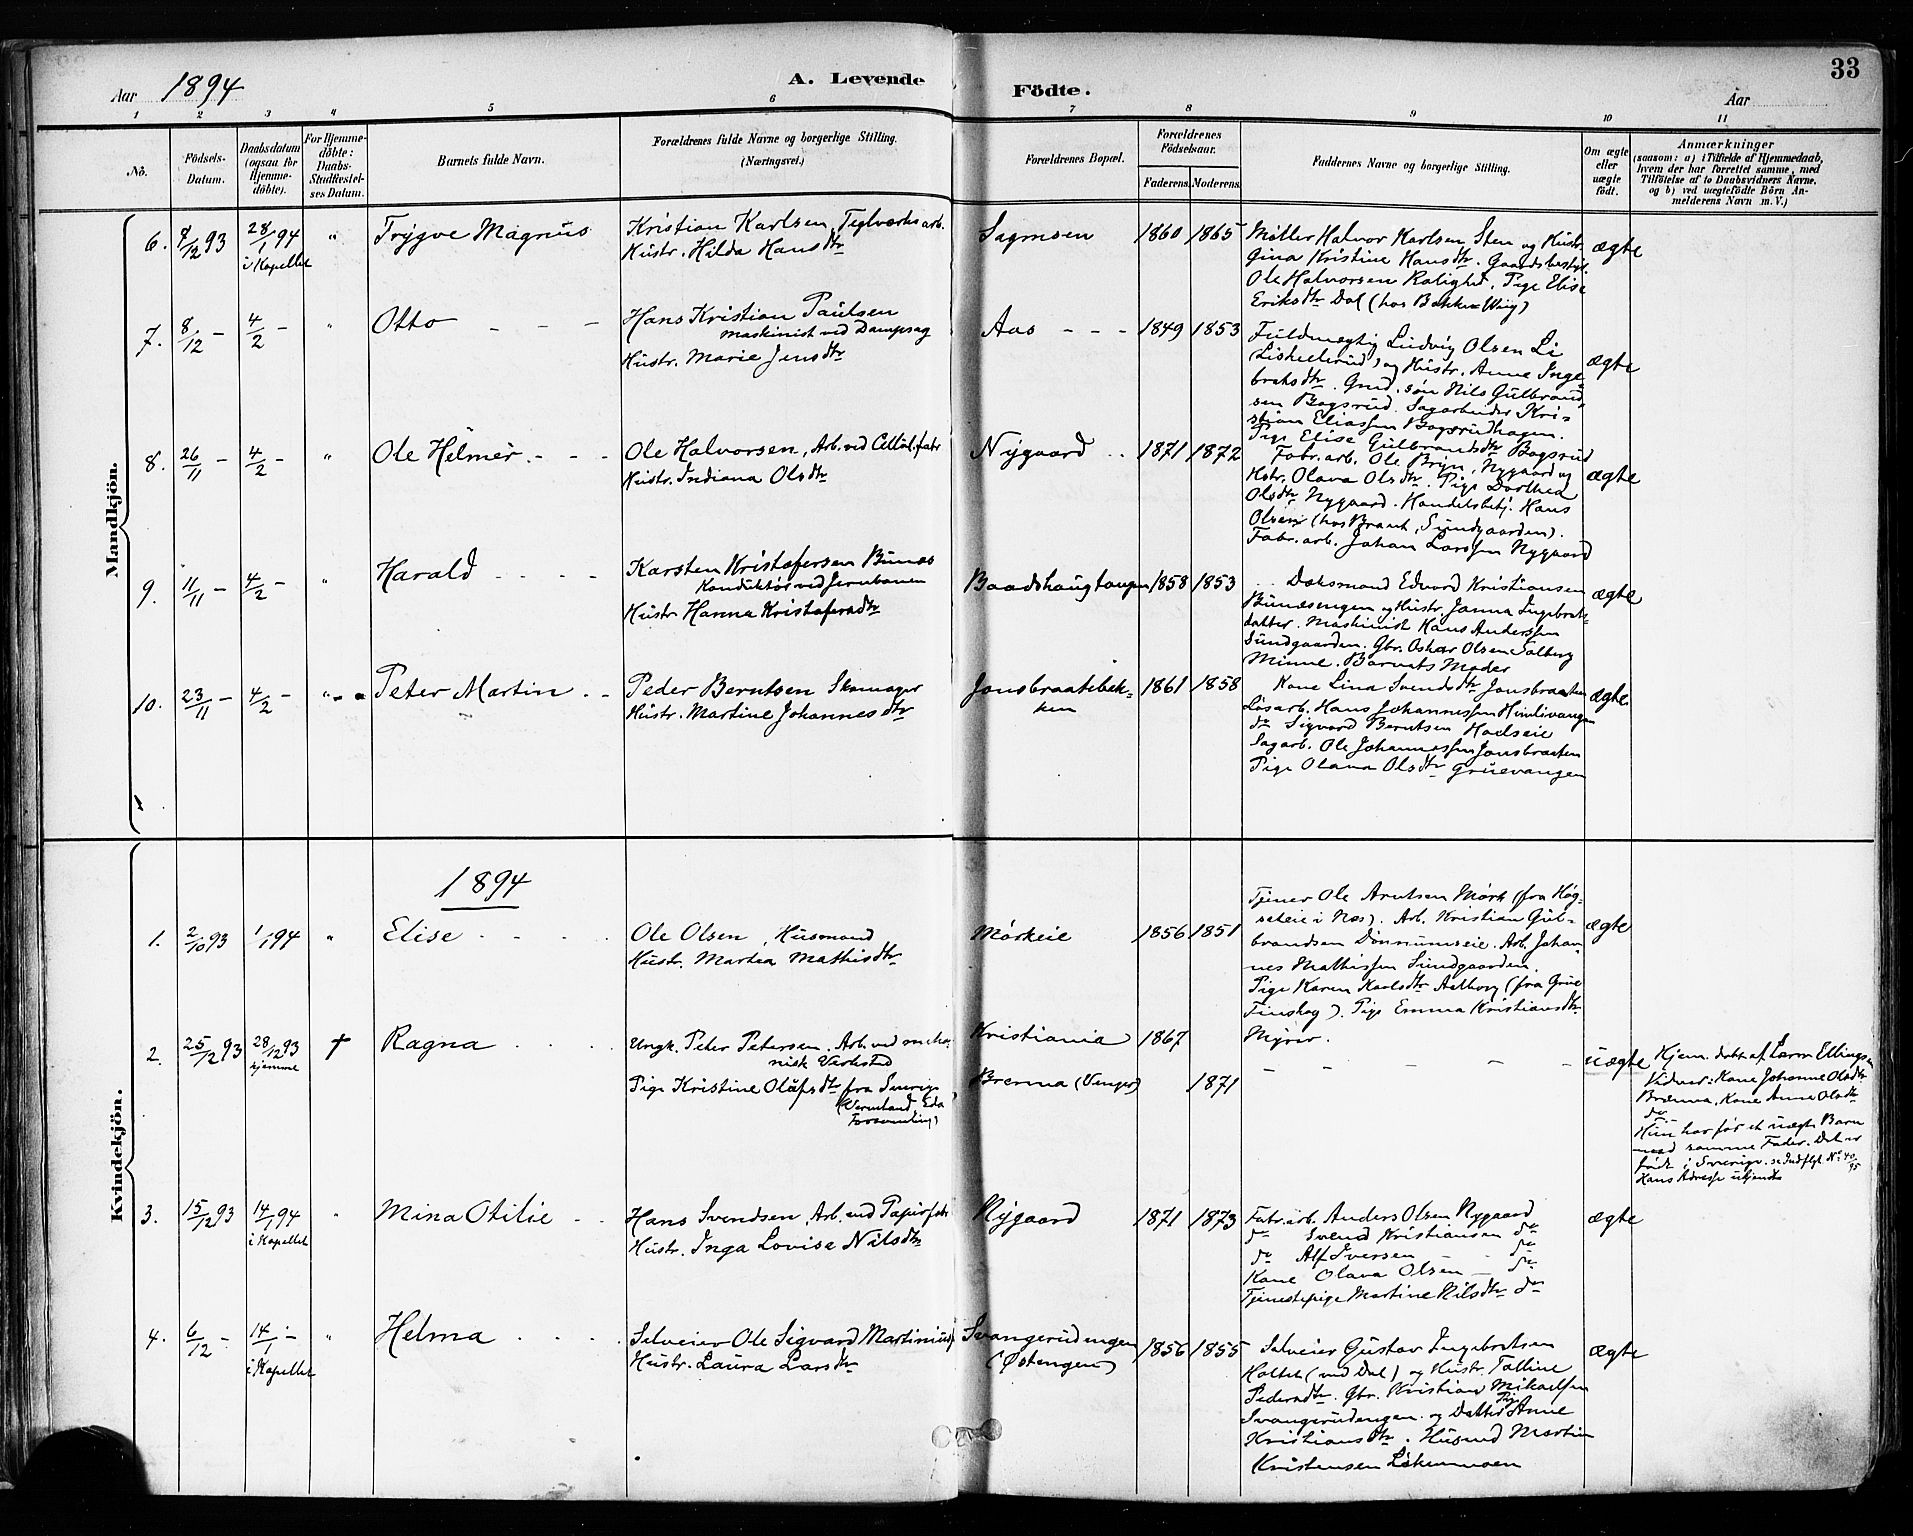 Aar 1894
A. Levende
Födte.
33
Aar
1 2 3 " 5 6 7 8 9 10 11
No.
Födsels-
Datum.
Daabsdatum
(ogsaa for
Hjemme-
döbte).
For Hjemme-
döbte:
Daabs-
Stadfæstel-
ses Datum.
Barnets fulde Navn.
Forældrenes fulde Navne og borgerlige Stilling.
(Næringsvei.)
Forældrenes Bopæl.
Forældrenes
Födselsaar.
Faderens. Moderens.
Faddernes Navne og borgerlige Stilling.
Om ægte
eller
uægte
födt.
Anmærkninger
(saasom: a) i Tilfælde af Hjemmedaab,
hvem der har forrettet samme, med
Tilföielse af to Daabsvidners Navne,
og b) ved uægtefödte Börn An-
melderens Navn m. V.)
Mandkjön.
6. 7/12 93 28/1 94 " Trygve Magnus
i Kapellet
Kristian Karlsen Teglværksarb.
Hustr. Hilda Hansdtr
Sagmoen 1860 1865
Møller Halvor Karlsen Sten og Hustr.
Gina Kristine Hansdtr. Gaardsbestyr.
Ole Halvorsen Rolighed. Pige Elise
Eriksdtr Dal (hos Bakke Wiig)
ægte
7. 8/12 - 4/2 - " Otto - - -
Hans Kristian Paulsen
Maskinist ved Dampsag
Hustr. Marie Jensdtr
Aas - - - 1849 1853
Fuldmægtig Ludvig Olsen Li
(Liskellerud) og Hustr. Anne Inge-
bretsdtr. Grd. søn Nils Gulbrand-
sen Bogsrud. Sagarbeider Kri-
stian Eliassen Bogsrudhagen.
Pige Elise Gulbrandsdtr Bogsrud
ægte
8. 26/11 - 4/2 - " Ole Helmer - - -
Ole Halvorsen, Arb. ved Cellul.fabr
Hustr. Indiana Olsdtr
Nygaard . . 1871 1872
Fabr. arb. Ole Bryn, Nygaard og
Hstr. Olava Olsdtr. Pige Dorthea
Olsdtr Nygaard. Handelsbetj. Hans
Olsen (hos Brant, Sundgaarden).
Fabr. arb. Johan Larssen Nygaard
ægte
9. 11/11 - 4/2 - " Harald - - - -
Karsten Kristofersen Bunæs
Konduktør ved Jernbanen
Hustr Hanna Kristofersdtr
Baadshaugtangen 1858 1853
Edvard Kristiansen
Bunæsengen og Hustr. Janna Ingebrets-
datter. Maskinist Hans Anderssen
Sundgaarden. Gbr. Oskar Olsen Solberg
Minne. Barnets Moder
ægte
10. 23/11 - 4/2 - " - - Peter Martin . -
Peder Berntsen Skomager
Hustr. Martine Johannesdtr
Jonsbraatebek-
ken
1861 1858
Kone Lina Svendsdtr Jonsbraaten
Løsarb. Hans Johannessen Himlivangen
do Sigvard Berntsen Hadseie
Sagarb. Ole Johannessen Jonsbraaten
Pige Olava Olsdtr Gruevangen
ægte.
Kvindekjön.
1894
1. 2/10 93 1/1 94 " Elise - - - -
Ole Olsen, Husmand
Hustr. Martea Mathisdtr
Mørkeie 1856 1851
Tjener Ole Arntsen Mørk (fra Høg-
seteie i Næs). Arb. Kristian Gul-
brandsen Dønnumseie. Arb. Johan-
nes Mathissen Sundgaarden.
Pige Karen Karlsdtr Aalborg (fra Grue
Finskog). Pige Emma Kristiansdtr
Myrer.
ægte
2. 25/12 93 28/12 93 † Ragna . . . .
hjemme
Ungk. Peter Petersen. Arb. ved meka-
nisk Verksted
Pige Kristine Olafsdtr fra Sverige
(Vermland, Eda
Forsamling)
Kristiania 1867
Brænna (Venger) 1871
- - - - - -
uægte
Hjem. døbt af Lærer Ellingsen
Vidner: Kone Johanne Olsdtr
Brænna, Kone Anne Olsdtr
do
Hun har før et uægte Barn
med samme Fader. Det er
født i Sverige. se Indflyt. No 40/95
Hans Adresse ukjendt
3. 15/12 93 14/1 94 " Mina Otilie - -
i Kapellet
Hans Svendsen, Arb. ved Papirfabr
Hustr. Inga Lovise Nilsdtr
Nygaard 1871 1873
Fabr. arb. Anders Olsen Nygaard
do Svend Kristiansen do
do Alf Iversen - - do
Kone Olava Olsen - do
Tjenestepige Martine Nilsdtr do
ægte
4. 6/12 - 14/1 - " Helma . . . .
i Kapellet
Selveier Ole Sigvard Martinius
Hustr. Laura Larsdtr
Svangerudengen
(Østengen)
1856 1855
Selveier Gustav Ingebretsen
Holtet (ved Dal) og Hustr. Talline
Pedersdtr. Gbr. Kristian Mikaelsen
Svangerudengen og Datter Pige Anne
Kristiansdtr. Husmd Martin
Kristensen Løkenmoen
ægte